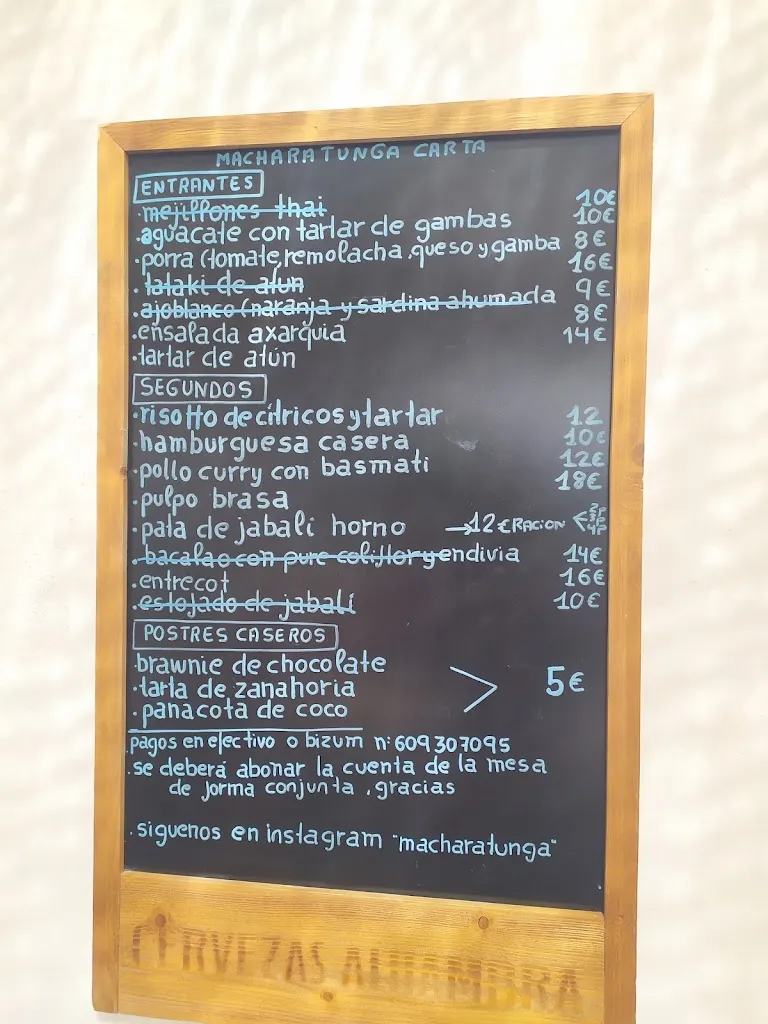 MACHARATUNGA CARTA
ENTRANTES
·mejillones thai 10€
·aguacate con tartar de gambas 10€
·porra (tomate,remolacha,queso y gamba 8€
·tataki de atun 16€
·ajoblanco (naranja y sardina ahumada 9€
·ensalada axarquia 8€
·tartar de atún 14€
SEGUNDOS
·risotto de cítricos y tartar 12
·hamburguesa casera 10€
·pollo curry con basmati 12€
·pulpo brasa 18€
·pata de jabalí horno →12€ RACION < 2P 3P 4P
·bacalao con pure coliflor y endivia 14€
·entrecot 16€
·estofado de jabalí 10€
POSTRES CASEROS
·brawnie de chocolate
·tarta de zanahoria > 5€
·panacota de coco
·pagos en efectivo o bizum nº 609307095
·se deberá abonar la cuenta de la mesa
de forma conjunta, gracias
·siguenos en instagram "macharatunga"
CERVEZAS ALHAMBRA